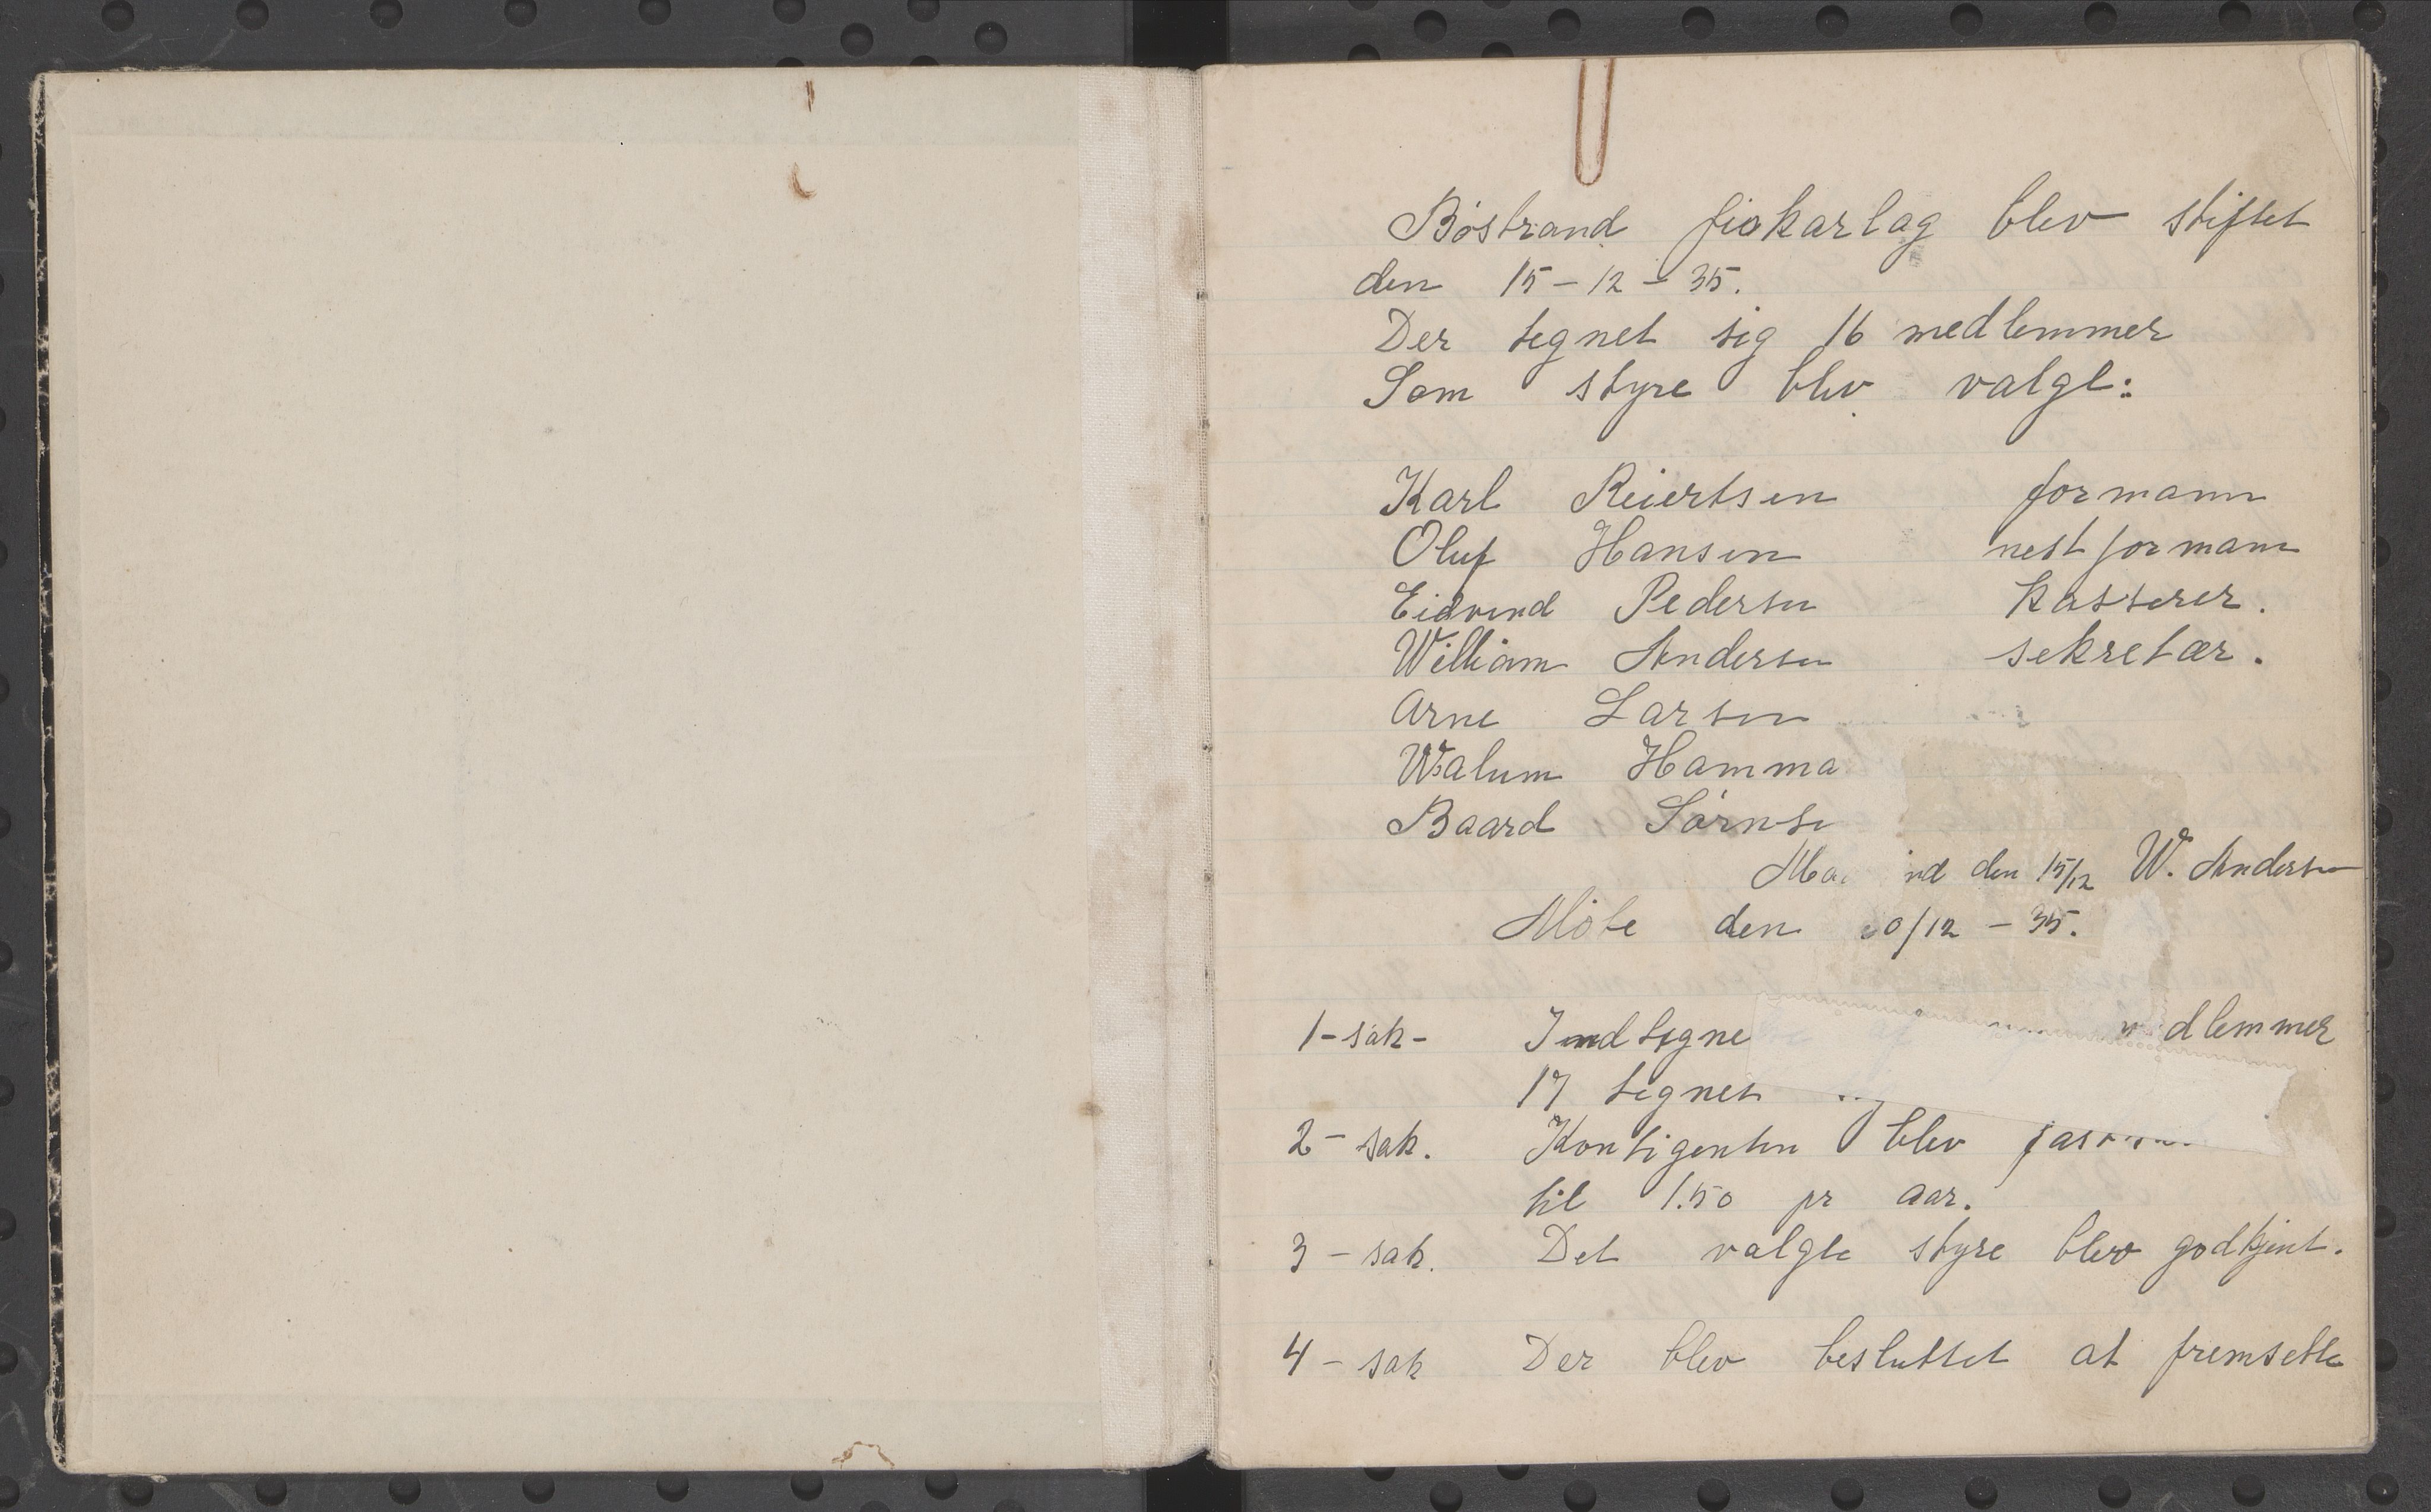 Bøstrand fiskarlag blev stiftet
den 15-12-35.
Der tegnet sig 16 medlemmer
Som styre blev valgt:
Karl Reiertsen formann
Oluf Hansen nestformann
Eidvind Pedersen kasserer.
William Andersen sekretær.
Arne Larsen
Walum Hamma
Baard Sørnse
den 15/12 W. Andersen
Møte den 0/12 - 35.
1-sak- Indtegne dlemmer
17 tegnet
2- sak. Kontigenten blev
til 1.50 pr aar.
3 - sak. Det valgte styre blev godkjent.
4 - sak Der blev besluttet at fremsette